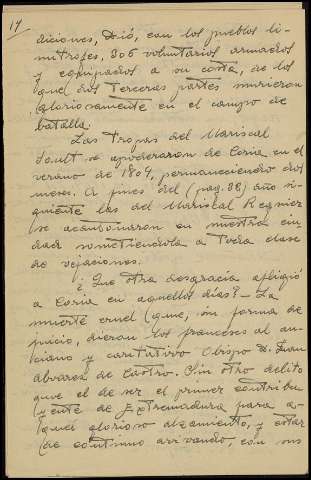 17
diciones, Dió, con los pueblos li-
mitrofes, 306 voluntarios armados
y equipados a su costa, de los
que dos Terceras partes murieron
gloriosamente en el campo de
batalla.
Las Tropas del Mariscal
Soult se apoderaron de Coria en el
verano de 1809, permaneciendo dos
meses. A fines del (pag. 38) año si-
guiente las del Mariscal Regnier
se acantonaron en nuestra ciu-
dad sometiendola a Toda clase
de vejaciones.
¿Que otra desgracia afligió
a Coria en aquellos días? - La
muerte cruel que, sin forma de
juicio, dieron los franceses al an-
ciano y caritativo Obispo D. Juan
alvarez de Castro. Sin otro delito
que el de ser el primer contribu
yente de Extremadura para a-
quel glorioso alzamiento, y estar
de continuo arrivando, con sus